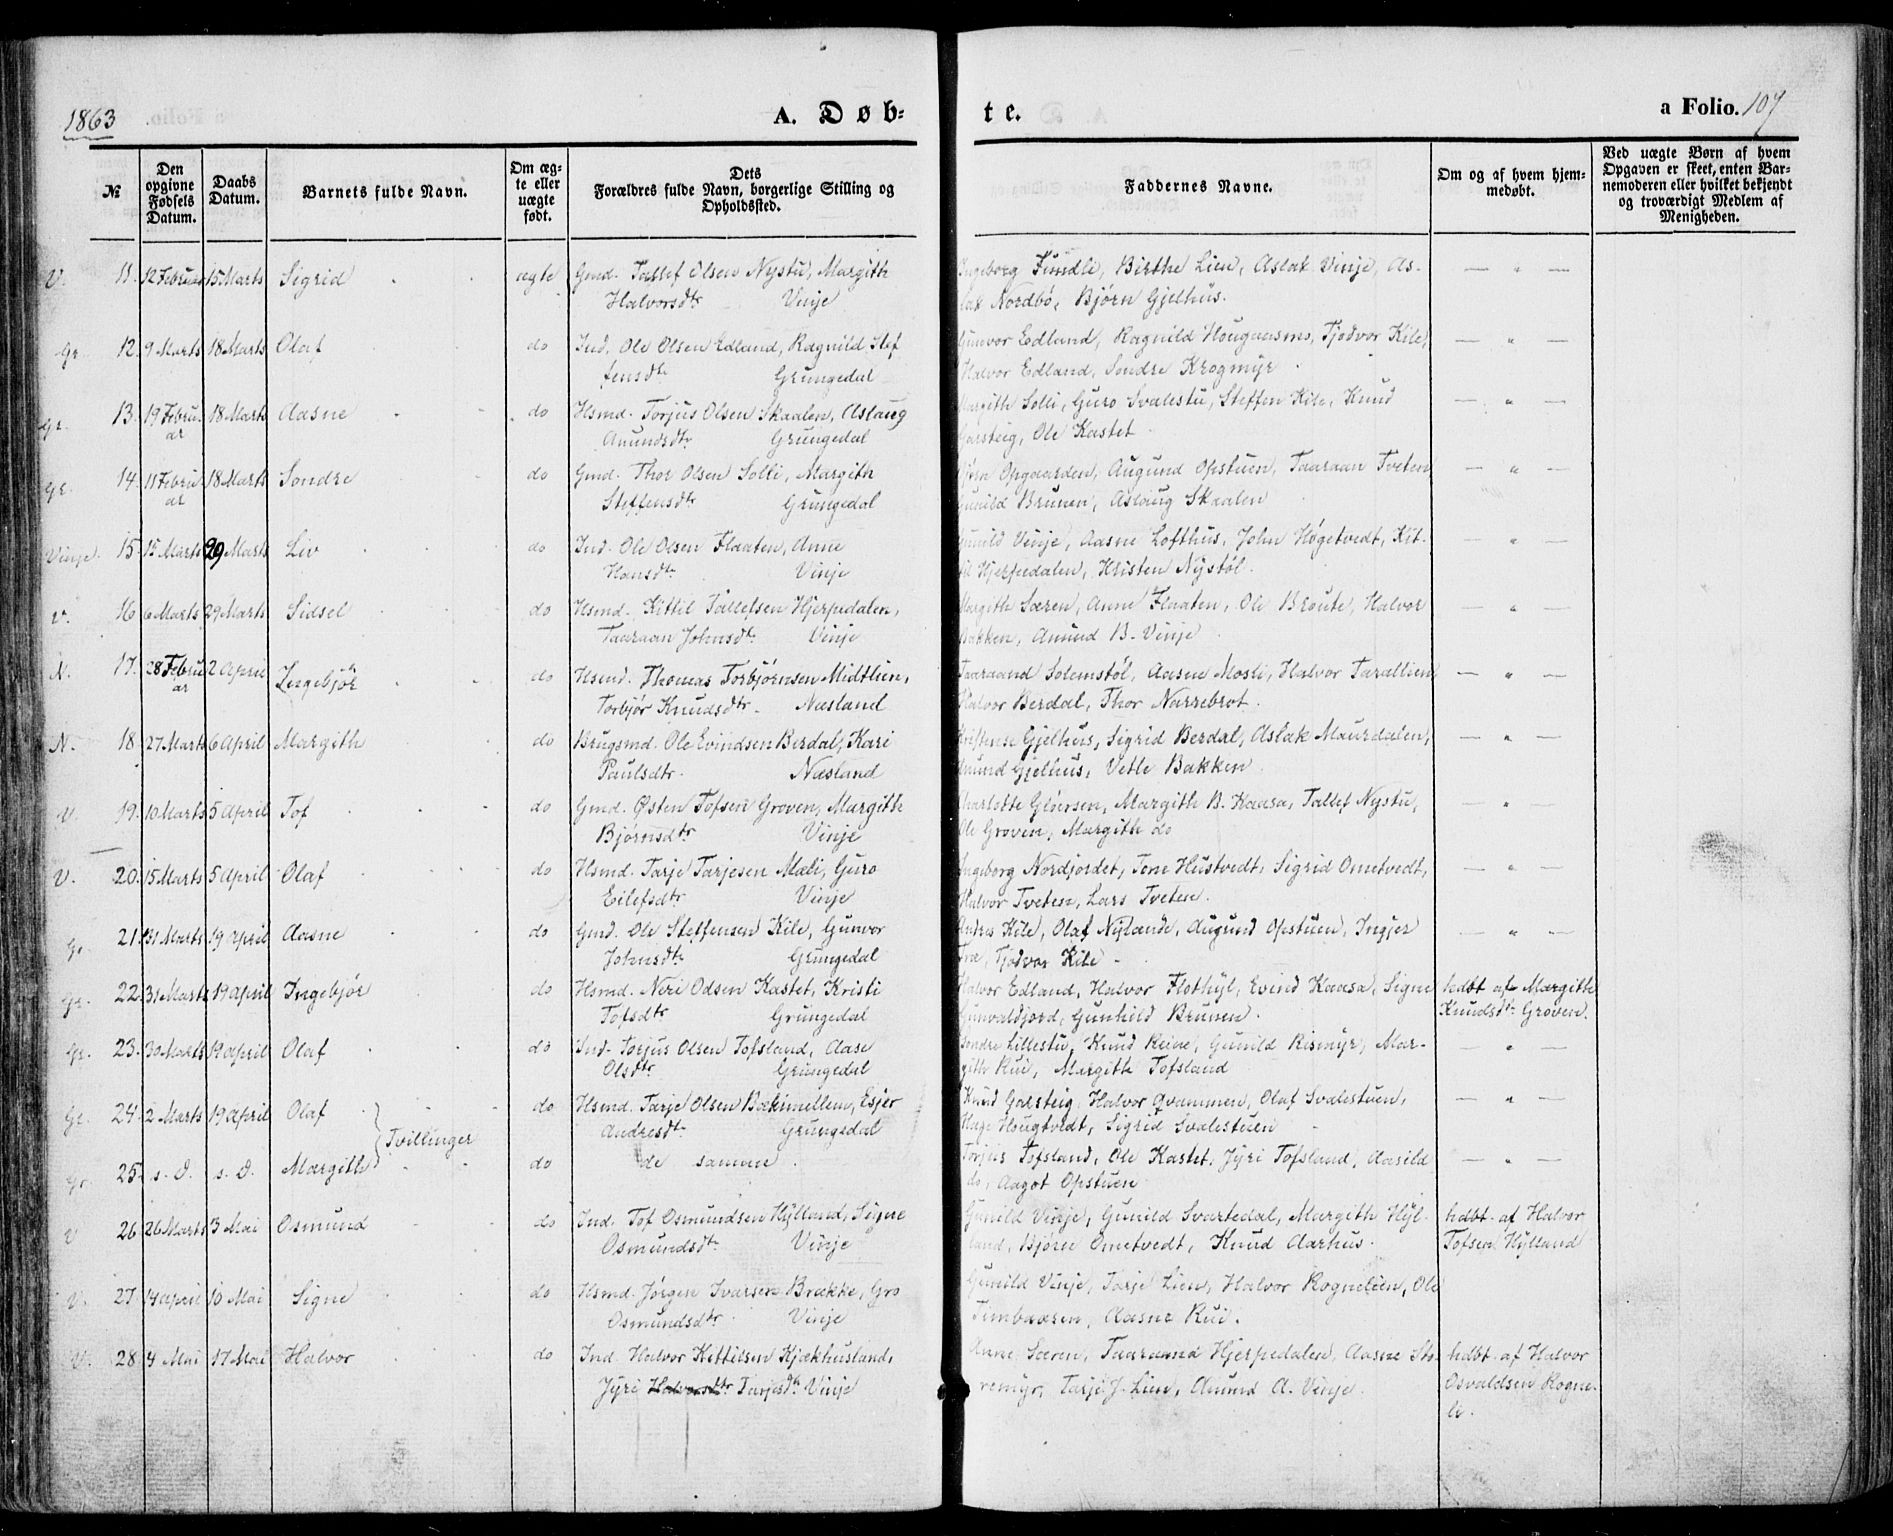 1863
A. Døb-
te.
a Folio. 107
№
Den opgivne Fødsels Datum.
Daabs Datum.
Barnets fulde Navn.
Om ægte eller uægte født.
Dets Forældres fulde Navn, borgerlige Stilling og Opholdssted.
Faddernes Navne.
Om og af hvem hjemmedøbt.
Ved uægte Børn af hvem Opgaven er skeet, enten Barnemoderen eller hvilket bekjendt og troværdigt Medlem af Menigheden.
V. 11. 12 Februar 15 Marts Sigrid ægte Gmd. Tallef Olsen Nystu, Margith Ingeborg Findli, Birthe Lien, Aslak Vinje, As- — " —
Halvorsdtr Vinje lak Nordbö, Bjørn Gjelhus.
Gr. 12. 9 Marts 18 Marts Olaf do Ind. Ole Olsen Edland, Ragnild Stef Gunvor Edland, Ragnild Tjodvor Kile, — " —
fensdtr Grungedal Halvor Edland, Sondre Krogmyr.
Gr. 13. 19 Febru- 18 Marts Aasne do Hsmd. Torjus Olsen Skaalen, Aslaug Margith Solli, Guro Svalestu, Steffen Kile, Knud — " —
ar Anundsdtr. Grungedal Ole Kastet.
Gr. 14. 11 Febru 18 Marts Sondre do Gmd. Thor Olsen Solli, Margith Bjørn Opgaarden, Augund Opstuen, Taaraan Tveten — " —
ar Steffensdtr Grungedal Gunild Brunen, Aslaug Skaalen
Vinje. 15. 15 Marts 29 Marts Liv do Ind. Ole Olsen Flaaten, Anne Gunild Vinje, Aasne Lofthus, John Høgetvedt, Kit- — " —
Hansdtr. Vinje til Hjerpedalen, Kristen Nystøl.
V. 16 6 Marts 29 Marts Sidsel do Hsmd. Kittil Tallefsen Hjerpedalen, Margith Særen, Anne Flaaten, Ole Broute, Halvor — " —
Taaraan Johnsdtr. Vinje Bakken, Anund B. Vinje
N. 17. 28 Febru 2 April Ingebjör do Hsmd. Thomas Torbjørnsen Midtlien, Taaraand Solemstøl, Aasne Mosli, Halvor Taraldlien — " —
ar Torbjør Knudsdtr. Næsland Halvor Berdal, Thor Narrebrot.
N. 18. 27 Marts 6 April Margith do Brugsmd. Ole Evindsen Berdal, Kari Kristense Gjelhus, Sigrid Berdal, Aslak Maurdalen, — " —
Paulsdtr. Næsland Anund Gjelhus, Vetle Bakken
V. 19. 10 Marts 5 April Tof do Gmd. Østen Tofsen Groven, Margith Charlotte Gløersen, Margith B. Kaasa, Tallef Nystu, — " —
Bjørnsdtr Vinje Ole Groven, Margith do
V. 20. 15 Marts 5 April Olaf do Hsmd. Tarje Tarjesen Mæli, Guro Ingeborg Nordjordet, Tone Hustvedt, Sigrid Ometvedt, — " —
Eilefsdtr Vinje Halvor Tveten, Lars Tveten.
Gr. 21. 31 Marts 19 April Aasne do Gmd. Ole Steffensen Kile, Gunvor Andres Kile, Olaf Nylænde, Augund Opstuen, Ingjer — " —
Johnsdtr Grungedal Træ, Tjodvor Kile -
Gr. 22. 31 Marts 19 April Ingebjör do Hsmd. Neri Odsen Kastet, Kristi Halvor Edland, Halvor Flothyl, Evind Kaasa, Signe hdbt af Margith
Tofsdtr Grungedal Gunvaldjord, Gunhild Brunen. Knudsdtr. Groven.
Gr. 23. 30 Marts 19 April Olaf do Ind. Torjus Olsen Tofsland, Aase Sondre Lillestu, Knud Reine, Gunild Rismyr, Mar- — " —
Olsdtr. Grungedal gith Rui, Margith Tofsland
Gr. 24. 2 Marts 19 April Olaf Tvillinger do Hsmd. Tarje Olsen Bækimellem, Esjer Knud Galsteig, Halvor Qvammen, Olaf Svalestuen, — " —
Andresdtr. Grungedal Hæge Hougtvedt, Sigrid Svalestuen -
Gr. 25. s. D. s. D. Margith do de samme Torjus Tofsland, Ole Kastet, Jyri Tofsland, Aasild — " —
do, Aagot Opstuen
V 26 26 Marts 3 Mai Osmund do Ind. Tof Osmundsen Hylland, Signe Gunild Vinje, Gunild Svartedal, Margith Hyl- hdbt. af Halvor
Osmundsdtr. Vinje land, Bjørn Ometvedt, Knud Aarhus. Tofsen Hylland
V. 27 14 April 10 Mai Signe do Hsmd. Jørgen Ivarsen Brække, Gro Gunild Vinje, Tarje Lien, Halvor Rognelien, Ole
Osmundsdtr. Vinje Timbaasen, Aasne Rui.
V. 28 4 Mai 17 Mai Halvor do Ind. Halvor Kittilsen Kjækhusland, Anne Særen, Taaraand Hjerpedalen, Aasne Sto- hdbt. af Halvor
Jyri Halvorsdtr Tarjesdtr. Vinje remyr, Tarje J. Lien, Anund A. Vinje. Osvaldsen Rogne-
li.